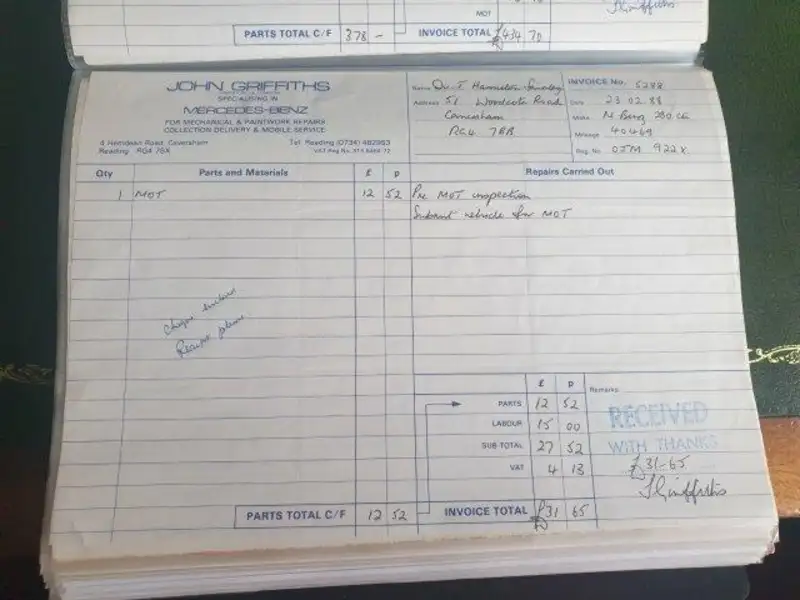 MOT
PARTS TOTAL C/F 378 -
INVOICE TOTAL £434 70
JGriffiths
JOHN GRIFFITHS
SPECIALISING IN
MERCEDES-BENZ
FOR MECHANICAL & PAINTWORK REPAIRS
COLLECTION DELIVERY & MOBILE SERVICE
4 Hemdean Road Caversham
Reading RG4 7SX
Tel Reading (0734) 482963
VAT Reg No.
Name Dr T Hamilton
Address 51 Woodcote Road
Caversham
RG4 7BB
INVOICE No. 5288
Date 23.02.88
Make M Benz 280 CE
Mileage 40469
Reg. No. OJM 922X
Qty Parts and Materials £ p Repairs Carried Out
1 MOT 12 52 Pre MOT inspection
Submit vehicle for MOT
Cheque enclosed
Receipt please
£ p Remarks
PARTS 12 52
LABOUR 15 00
SUB TOTAL 27 52
VAT 4 13
RECEIVED
WITH THANKS
£31-65
JGriffiths
PARTS TOTAL C/F 12 52
INVOICE TOTAL £31 65